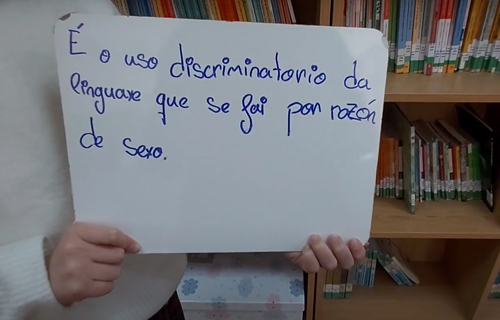 É o uso discriminatorio da
linguaxe que se fai por razón
de sexo.